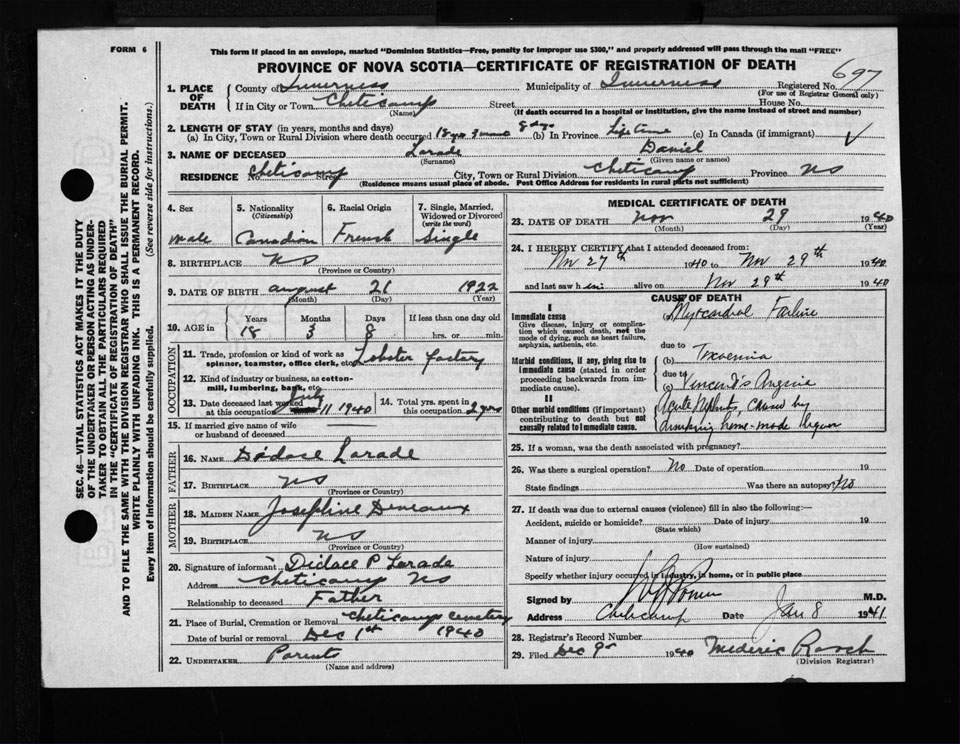 FORM 6
This form if placed in an envelope, marked "Dominion Statistics—Free, penalty for improper use $300," and properly addressed will pass through the mail "FREE"
PROVINCE OF NOVA SCOTIA—CERTIFICATE OF REGISTRATION OF DEATH
1. PLACE OF DEATH County of Inverness Municipality of Inverness Registered No. 697
(For use of Registrar General only)
If in City or Town Cheticamp Street House No.
(Name) (If death occurred in a hospital or institution, give the name instead of street and number)
2. LENGTH OF STAY (in years, months and days)
(a) In City, Town or Rural Division where death occurred 18 yrs 3 mos 8 dys (b) In Province Life time (c) In Canada (if immigrant)
3. NAME OF DECEASED Larade Daniel
(Surname) (Given name or names)
RESIDENCE No. Cheticamp Street City, Town or Rural Division Cheticamp Province NS
(Residence means usual place of abode. Post Office Address for residents in rural parts not sufficient)
4. Sex 5. Nationality (Citizenship) 6. Racial Origin 7. Single, Married, Widowed or Divorced (write the word)
male Canadian French Single
8. BIRTHPLACE NS
(Province or Country)
9. DATE OF BIRTH August 21 1922
(Month) (Day) (Year)
10. AGE in Years Months Days If less than one day old
18 3 8 hrs. or min.
OCCUPATION
11. Trade, profession or kind of work as spinner, teamster, office clerk, etc. Lobster factory
12. Kind of industry or business, as cotton-mill, lumbering, bank, etc.
13. Date deceased last worked at this occupation July 11 1940 14. Total yrs. spent in this occupation 2 yrs
15. If married give name of wife or husband of deceased
FATHER
16. NAME Didace Larade
17. BIRTHPLACE NS
(Province or Country)
MOTHER
18. MAIDEN NAME Josephine Deveaux
19. BIRTHPLACE NS
(Province or Country)
20. Signature of informant Didace P Larade
Address Cheticamp NS
Relationship to deceased Father
21. Place of Burial, Cremation or Removal Cheticamp cemetery
Date of burial or removal Dec 1st 1940
22. UNDERTAKER Parents
(Name and address)
MEDICAL CERTIFICATE OF DEATH
23. DATE OF DEATH Nov 29 1940
(Month) (Day) (Year)
24. I HEREBY CERTIFY that I attended deceased from:
Nov 27th 1940 to Nov 29th 1940
and last saw him alive on Nov 29th 1940
CAUSE OF DEATH
I
Immediate cause (a) Myocardial Failure
Give disease, injury or complication which caused death, not the mode of dying, such as heart failure, asphyxia, asthenia, etc.
due to
Morbid conditions, if any, giving rise to immediate cause (stated in order proceeding backwards from immediate cause). (b) Toxaemia
due to
(c) Vincent's Angina
II
Other morbid conditions (if important) contributing to death but not causally related to immediate cause. Acute Nephritis, caused by
drinking home-made liquor
25. If a woman, was the death associated with pregnancy?
26. Was there a surgical operation? No Date of operation 19
State findings Was there an autopsy? No
27. If death was due to external causes (violence) fill in also the following:—
Accident, suicide or homicide? Date of injury 19
(State which)
Manner of injury
(How sustained)
Nature of injury
Specify whether injury occurred in industry, in home, or in public place
Signed by M.D.
Address Cheticamp Date Jan 8 1941
28. Registrar's Record Number
29. Filed Dec 9 1940 Mederic Roach
(Division Registrar)
SEC. 46—VITAL STATISTICS ACT MAKES IT THE DUTY
OF THE UNDERTAKER OR PERSON ACTING AS UNDER-
TAKER TO OBTAIN ALL THE PARTICULARS REQUIRED
IN THE "CERTIFICATE OF REGISTRATION OF DEATH"
AND TO FILE THE SAME WITH THE DIVISION REGISTRAR WHO SHALL ISSUE THE BURIAL PERMIT.
WRITE PLAINLY WITH UNFADING INK. THIS IS A PERMANENT RECORD.
Every item of information should be carefully supplied. (See reverse side for instructions.)